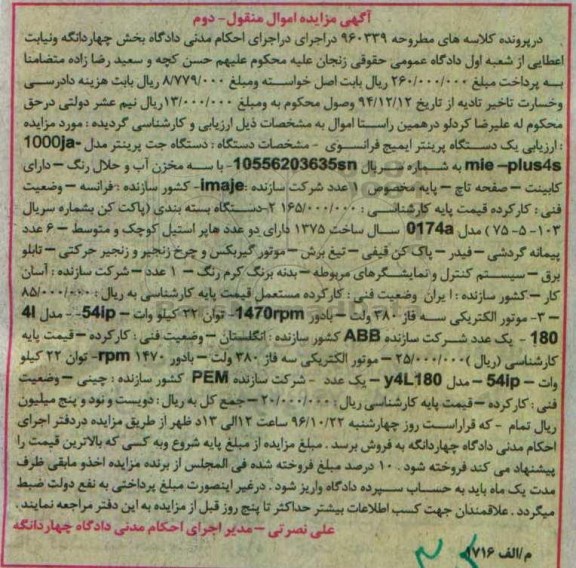 آگهی مزایده اموال منقول- دوم
درپرونده کلاسه های مطروحه ۹۶۰۳۳۹ دراجرای دراجرای احکام مدنی دادگاه بخش چهاردانگه ونیابت
اعطایی از شعبه اول دادگاه عمومی حقوقی زنجان علیه محکوم علیهم حسن کچه و سعید رضا زاده متضامنا
به پرداخت مبلغ ۲۶۰/۰۰۰/۰۰۰ ریال بابت اصل خواسته ومبلغ ۸/۷۷۹/۰۰۰ ریال بابت هزینه دادرسی
وخسارت تاخیر تادیه از تاریخ ۹۴/۱۲/۱۲ وصول محکوم به ومبلغ ۱۳/۰۰۰/۰۰۰ریال نیم عشر دولتی درحق
محکوم له علیرضا کردلو درهمین راستا اموال به مشخصات ذیل ارزیابی و کارشناسی گردیده : مورد مزایده
: ارزیابی یک دستگاه پرینتر ایمیج فرانسوی - مشخصات دستگاه : دستگاه جت پرینتر مدل 1000ja-
mie –plus4s به شماره سریال 10556203635sn- با سه مخزن آب و حلال رنگ – دارای
کابینت – صفحه تاچ – پایه مخصوص ۱ عدد شرکت سازنده :imaje- کشور سازنده : فرانسه – وضعیت
فنی : کارکرده قیمت پایه کارشناسی : ۱۶۵/۰۰۰/۰۰۰ ۲-دستگاه بسته بندی (پاکت کن بشماره سریال
۱۰۳- ۵- ۷۵ ) مدل 0174a سال ساخت ۱۳۷۵ دارای دو عدد هاپر استیل کوچک و متوسط – ۶ عدد
پیمانه گردشی – فیدر – پاک کن قیفی – تیغ برش – موتور گیربکس و چرخ زنجیر و زنجیر حرکتی – تابلو
برق – سیستم کنترل و نمایشگرهای مربوطه – بدنه برنگ کرم رنگ – ۱ عدد – شرکت سازنده : آسان
کار – کشور سازنده : ایران وضعیت فنی : کارکرده مستعمل قیمت پایه کارشناسی به ریال : ۸۵/۰۰۰/۰۰۰
– ۳- موتور الکتریکی سه فاز ۳۸۰ ولت – بادور 1470rpm- توان ۲۲ کیلو وات – 54ip- - مدل 4l
180 - یک عدد شرکت سازنده ABB کشور سازنده : انگلستان – وضعیت فنی : کارکرده – قیمت پایه
کارشناسی (ریال )۲۵/۰۰۰/۰۰۰ – موتور الکتریکی سه فاز ۳۸۰ ولت – بادور ۱۴۷۰ rpm- توان ۲۲ کیلو
وات – 54ip – مدل y4L180 – یک عدد - شرکت سازنده PEM کشور سازنده : چینی – وضعیت
فنی : کارکرده – قیمت پایه کارشناسی ریال : ۲۰/۰۰۰/۰۰۰ – جمع کل به ریال : دویست و نود و پنج میلیون
ریال تمام - که قراراست روز چهارشنبه ۹۶/۱۰/۲۲ ساعت ۱۲الی ۱۳د ظهر از طریق مزایده دردفتر اجرای
احکام مدنی دادگاه چهاردانگه به فروش برسد . مبلغ مزایده از مبلغ پایه شروع وبه کسی که بالاترین قیمت را
پیشنهاد می کند فروخته شود . ۱۰ درصد مبلغ فروخته شده فی المجلس از برنده مزایده اخذو مابقی ظرف
مدت یک ماه باید به حساب سپرده دادگاه واریز شود . درغیر اینصورت مبلغ پرداختی به نفع دولت ضبط
میگردد . علاقمندان جهت کسب اطلاعات بیشتر حداکثر تا پنج روز قبل از مزایده به این دفتر مراجعه نمایند .
علی نصرتی – مدیر اجرای احکام مدنی دادگاه چهاردانگه
م/الف ۱۷۱۶